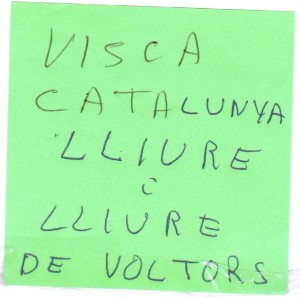 VISCA
CATALUNYA
LLIURE
i
LLIURE
DE VOLTORS